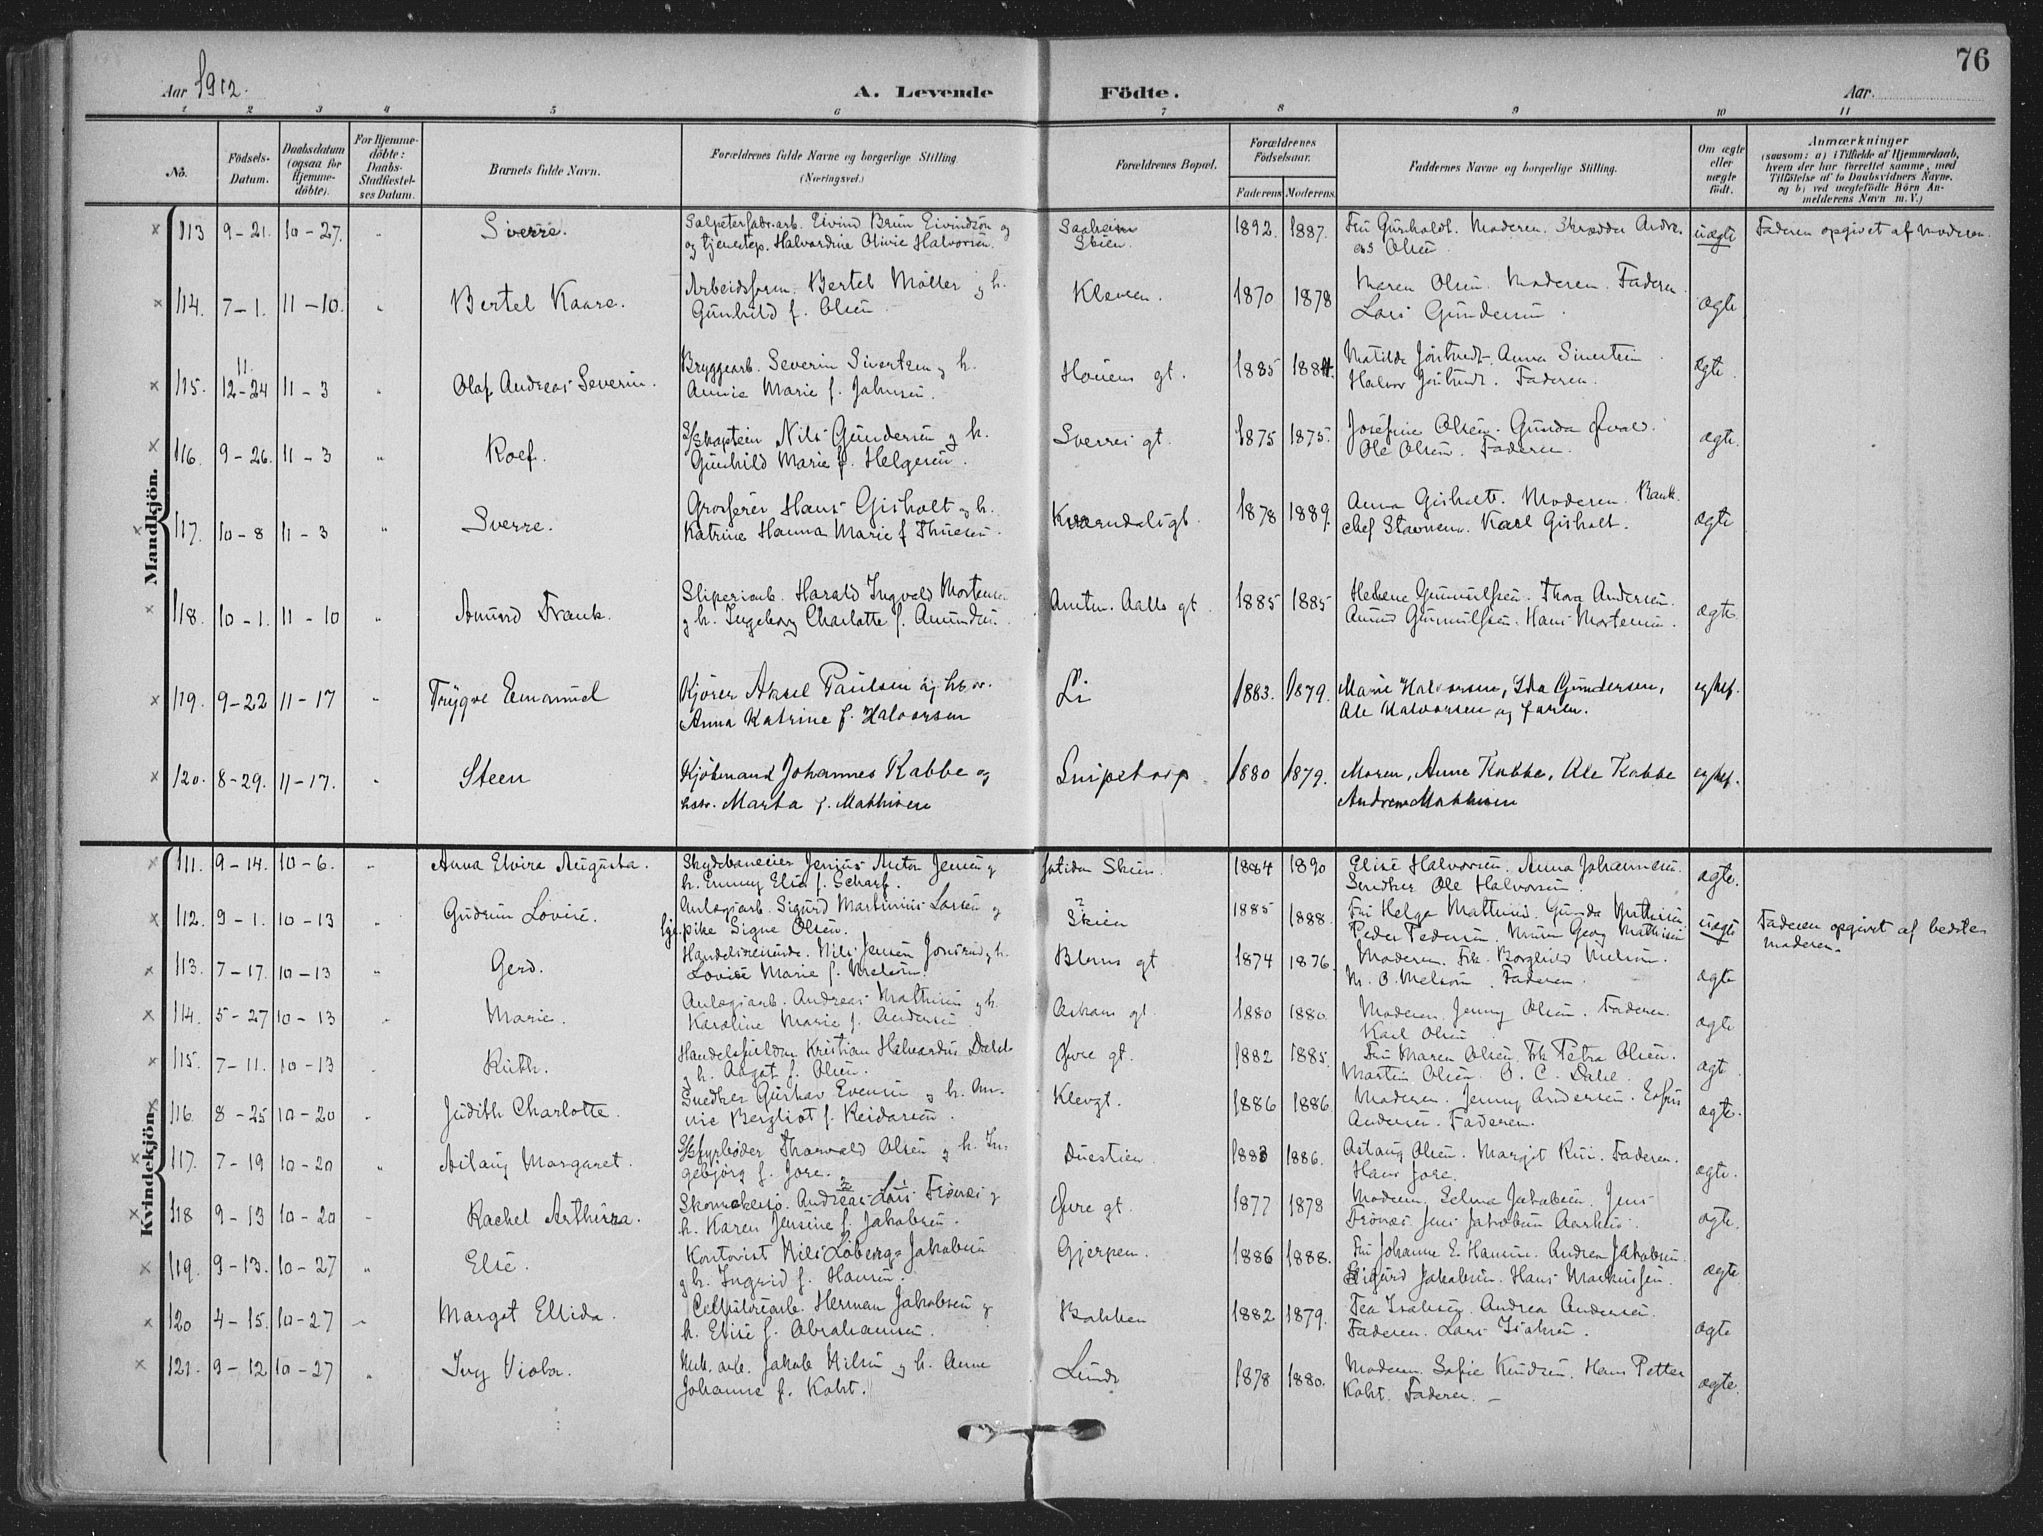 76
Aar 1912. A. Levende Födte. Aar
1 2 3 4 5 6 7 8 9 10 11
No. Födsels-Datum. Daabsdatum (ogsaa for Hjemmedöbte). For Hjemmedöbte: Daabs-Stadfæstelses Datum. Barnets fulde Navn. Forældrenes fulde Navne og borgerlige Stilling (Næringsvei.) Forældrenes Bopæl. Forældrenes Födselsaar. Faderens Moderens. Faddernes Navne og borgerlige Stilling. Om ægte eller uægte födt. Anmærkninger (saasom: a) i Tilfælde af Hjemmedaab, hvem der har forrettet samme, med Tilföielse af to Daabsvidners Navne, og b) ved uægtefödte Börn Anmelderens Navn m. V.)
Mandkjön.
113 9-21. 10-27. " Sverre. Salpeterfabr.arb. Eivind Brun Eivindsön og Saaheim 1892. 1887. Fru Gunholdt. Moderen. Skrædder Andre- uægte Faderen opgivet af moderen.
og tjenestep. Halvardine Olivie Halvorsen. Skien. as Olsen
114. 7-1. 11-10. " Bertel Kaare. Arbeidsform. Bertel Möller og h. Kleven. 1870 1878 Maren Olsen. Moderen. Faderen. ægte
Gunhild f. Olsen Lars Gundersen
115. 11. 12-24 11-3 " Olaf Andreas Severin. Bryggearb. Severin Sivertsen og h. Houens gt. 1885 1884. Matilde Anna Sivertsen ægte.
Annie Marie f. Johnsen. Halvor Faderen.
116. 9-26. 11-3 " Rolf. S/Skaptein Nils Gundersen og h. Sverres gt. 1875 1875. Josefine Olsen. Gunda ægte.
Gunhild Marie f. Helgesen. Ole Olsen. Faderen.
117. 10-8 11-3 " Sverre. Grosserer Hans Gisholt og h. Kværndalsgt. 1878 1889. Anna Gisholt. Moderen. Bank- ægte
Katrine Hanna Marie f. Thuesen. chef Stavnem. Karl Gisholt.
118. 10-1. 11-10 " Amund Frank. Sliperiarb. Harald Ingvald Mortensen Amtm. Aalls gt. 1885 1885 Helene Gunnulfsen. Thora Andersen. ægte.
og h. Ingeborg Charlotte f. Amundsen. Amund Gunnulfsen. Hans Mortensen.
119. 9-22 11-17 " Trygve Emanuel Kjører Aksel Paulsen og hv. Li 1883. 1879. Marie Halvorsen, Ida Gundersen,
Anna Katrine f. Halvorsen Ole Halvorsen og faren.
120. 8-29. 11-17. " Steen Kjöbmand Johannes Kabbe og Snipetorp 1880 1879. Moren, Anne Kabbe, Ole Kabbe
Marta f. Mathisen Andreas Mathisen
Kvindekjön.
111. 9-14. 10-6. " Anna Elvira Augusta. Skydebaneeier Jenius Anton Jensen og Skien. 1884 1890 Elise Halvorsen. Anna Johannesen. ægte.
h. Emmy Elise f. Scharf. Snedker Ole Halvorsen.
112. 9-1. 10-13 " Gudrun Lovise. Anlægsarb. Sigurd Martinius Larsen og Skien 1885 1888. Fru Helga Mathisen. Gunda Mathisen uægte Faderen opgivet af bedste-
pike Signe Olsen. Peder Pedersen. Georg Mathisen moderen.
113. 7-17. 10-13 " Gerd. Nils Jensen og h. Bloms gt 1874 1876. Moderen. Frk. Borghild Nielsen. ægte
Lovise Marie f. Nielsen. M. O. Nielsen. Faderen.
114. 5-27 10-13 " Marie. Anlægsarb. Andreas Mathisen og h. gt. 1880 1880. Moderen. Jenny Olsen. Faderen. ægte
Karoline Marie f. Andersen Karl Olsen
115. 7-11. 10-13 " Ruth. Kristian Halvardus Dahl Övre gt. 1882 1885. Fru Maren Olsen. Frk Petra Olsen. ægte
og h. Aagot f. Olsen. Martin Olsen. O. C. Dahl.
116. 8-25 10-20 " Judith Charlotte. Snedker Gustav Evensen og h. An- Klevgt. 1886 1886. Moderen. Jenny Andersen. ægte.
nie Bergliot f. Reidarsen. Andersen. Faderen.
117. 7-19 10-20 " Aslaug Margaret. S/Sfyrböder Thorvald Olsen og h. In- Duestien 1883 1886. Aslaug Olsen. Margit Faderen. ægte.
gebjörg f. Jore. Hans Jore.
118 9-13 10-20 " Rachel Arthirra. Andreas Lars Frönæs og Övre gt. 1877 1878 Moderen. Selma Jakobsen. Jens ægte.
h. Karen Jensine f. Jakobsen. Frönæs. Jens Jakobsen
119. 9-13. 10-27 " Else. Kontorist Nils Löberg Jakobsen Gjerpen. 1886 1888. Fru Johanne E. Hansen. Andrea Jakobsen. ægte
og h. Ingrid f. Hansen. Sigurd Jakobsen. Hans Markussen.
120 4-15. 10-27 " Margot Ellida. Herman Jakobsen og Bakken 1882 1879. Tea Isaksen. Andrea Andersen. ægte
h. Elise f. Abrahamsen. Faderen. Lars Isaksen.
121. 9-12 10-27 " Ivy Viola. arb. Jakob Nilsen og h. Anne Lunde 1878 1880. Moderen. Sofie Knudsen. Hans Petter ægte.
Johanne f. Kobt. Kobt. Faderen. —